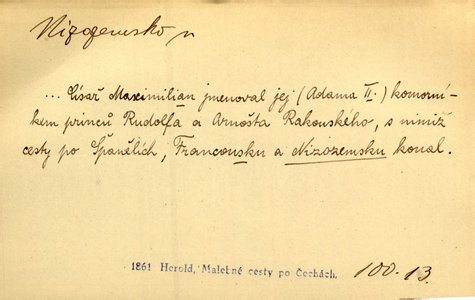 Nizozemsko n
... Císař Maxmilián jmenoval jej (Adama II.) komorní-
kem princů Rudolfa a Arnošta Rakouského, s nimiž
cesty po Španělích, Francousku a Nizozemsku konal.
1861 Herold, Malebné cesty po Čechách. 100.13.